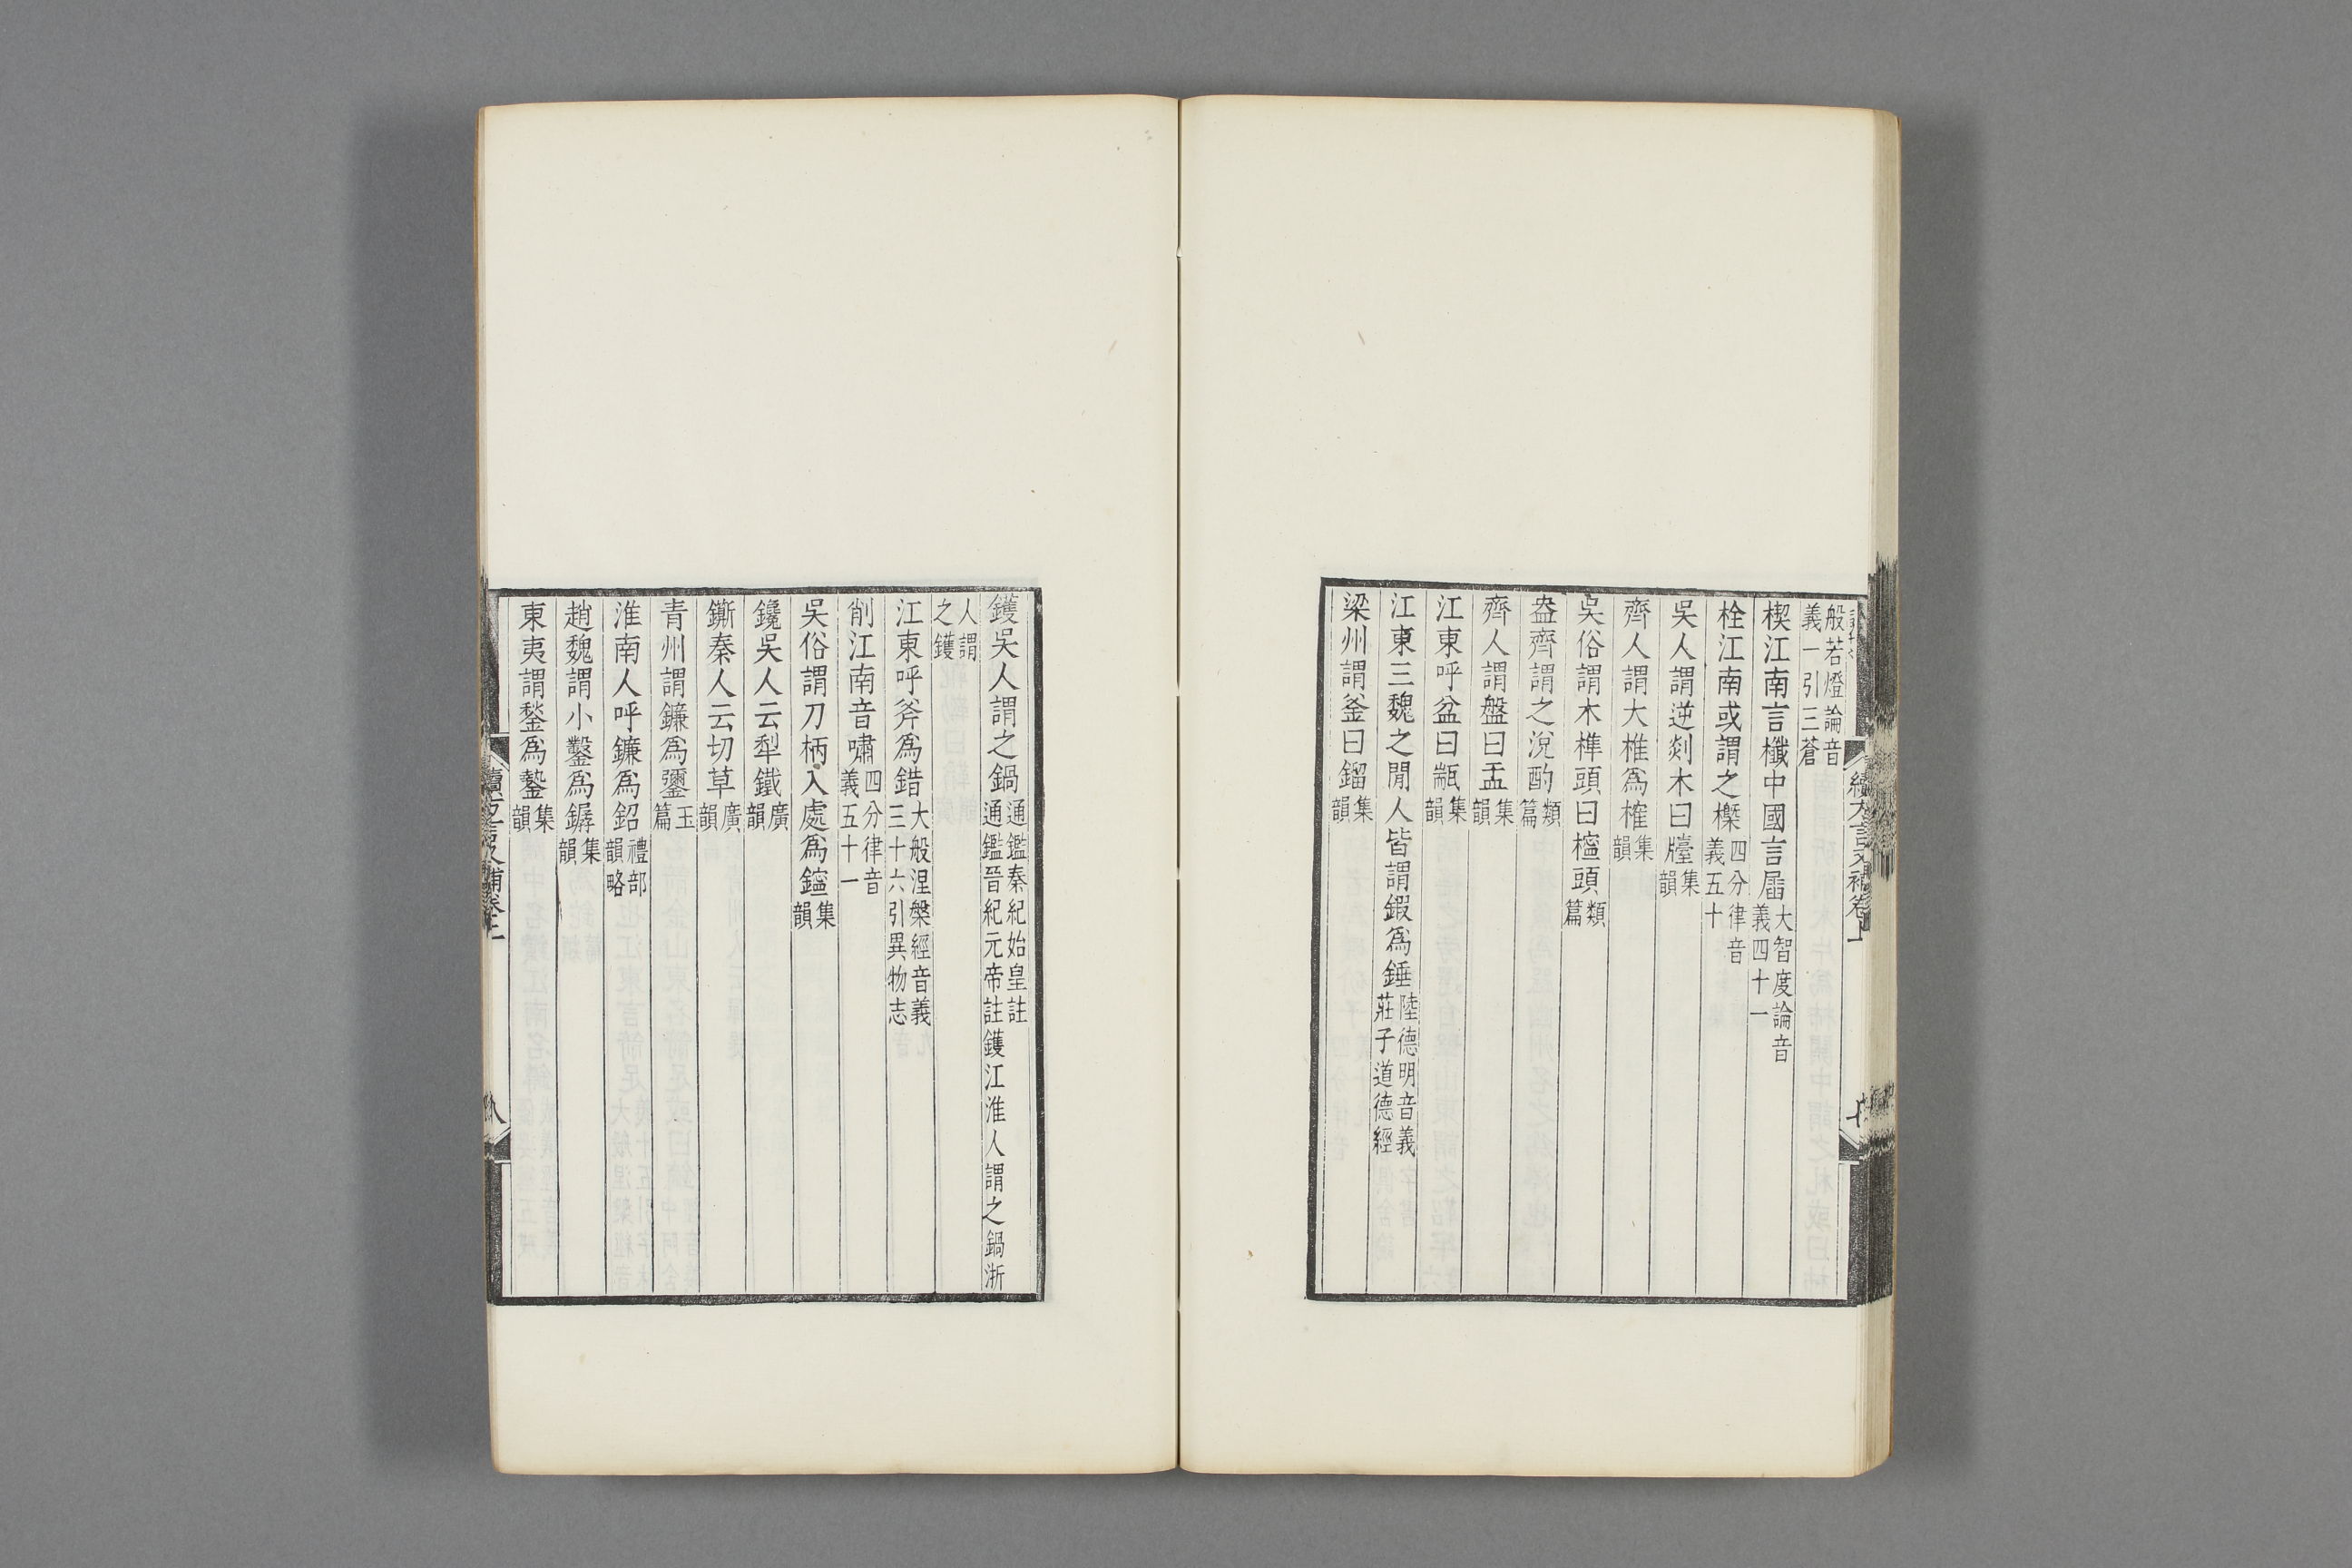 般若燈論音義一引三蒼
楔江南言櫼中國言屆大智度論音義四十一
栓江南或謂之櫱四分律音義五十
吳人謂逆剡木曰㯂集韻
齊人謂大椎為榷集韻
吳俗謂木榫頭曰㯠頭類篇
盎齊謂之涗酌類篇
齊人謂盤曰盂集韻
江東呼盆曰甂集韻
江東三魏之閒人皆謂鍜為錘陸德明音義莊子道德經
梁州謂釜曰鎦集韻
續方言又補卷上
鑊吳人謂之鍋通鑑秦紀始皇註通鑑晉紀元帝註鑊江淮人謂之鍋浙
人謂之鑊
江東呼斧為錯大般涅槃經音義三十六引異物志
削江南音嘯四分律音義五十一
吳俗謂刀柄入處為鑏集韻
鑱吳人云犁鐵廣韻
鐁秦人云切草廣韻
青州謂鐮為䥸玉篇
淮南人呼鐮為鉊禮部韻略
趙魏謂小鑿為鏟集韻
東夷謂鍫為鏊集韻
續方言又補卷上
八